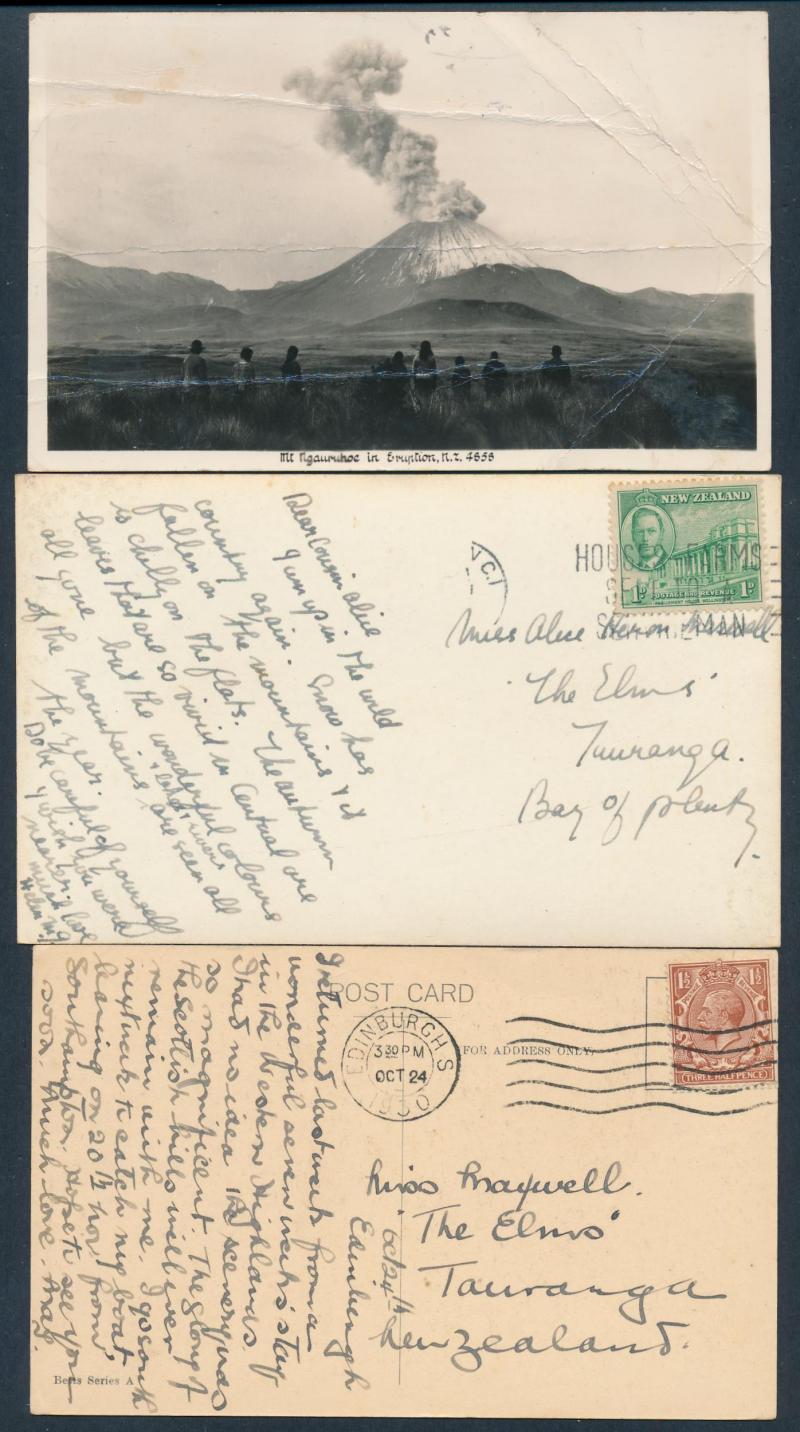 Mt Ngauruhoe in Eruption, N.Z. 4658
Dear Cousin Alice
I am up in the wild
country again. Snow has
fallen on the mountains & it
is chilly on the flats. The autumn
leaves that are so vivid in Central are
all gone but the wonderful colours
of the mountains & lakes, rivers are seen all
the year.
Do be careful of yourself
I wish you were
nearer. love
Helen
NEW ZEALAND
1D POSTAGE AND REVENUE 1D
PARLIAMENT HOUSE, WELLINGTON
HOUSES FARMS
MAN
Miss Alice Heron Maxwell
'The Elms'
Tauranga.
Bay of Plenty.
POST CARD
FOR ADDRESS ONLY.
EDINBURGH.S
3 30 PM
OCT 24
1930
1½ 1½
POSTAGE REVENUE
THREE HALFPENCE
I returned last week from a
wonderful seven week's stay
in the Western Highlands.
I had no idea the scenery was
so magnificent. The glory of
the Scottish hills will ever
remain with me. I go south
next week to catch my boat
leaving on 20th Nov. from
Southampton. Hope to see you
soon. Much love.
Edinburgh
Oct 24th
Miss Maxwell.
"The Elms"
Tauranga
New Zealand.
Betts Series A